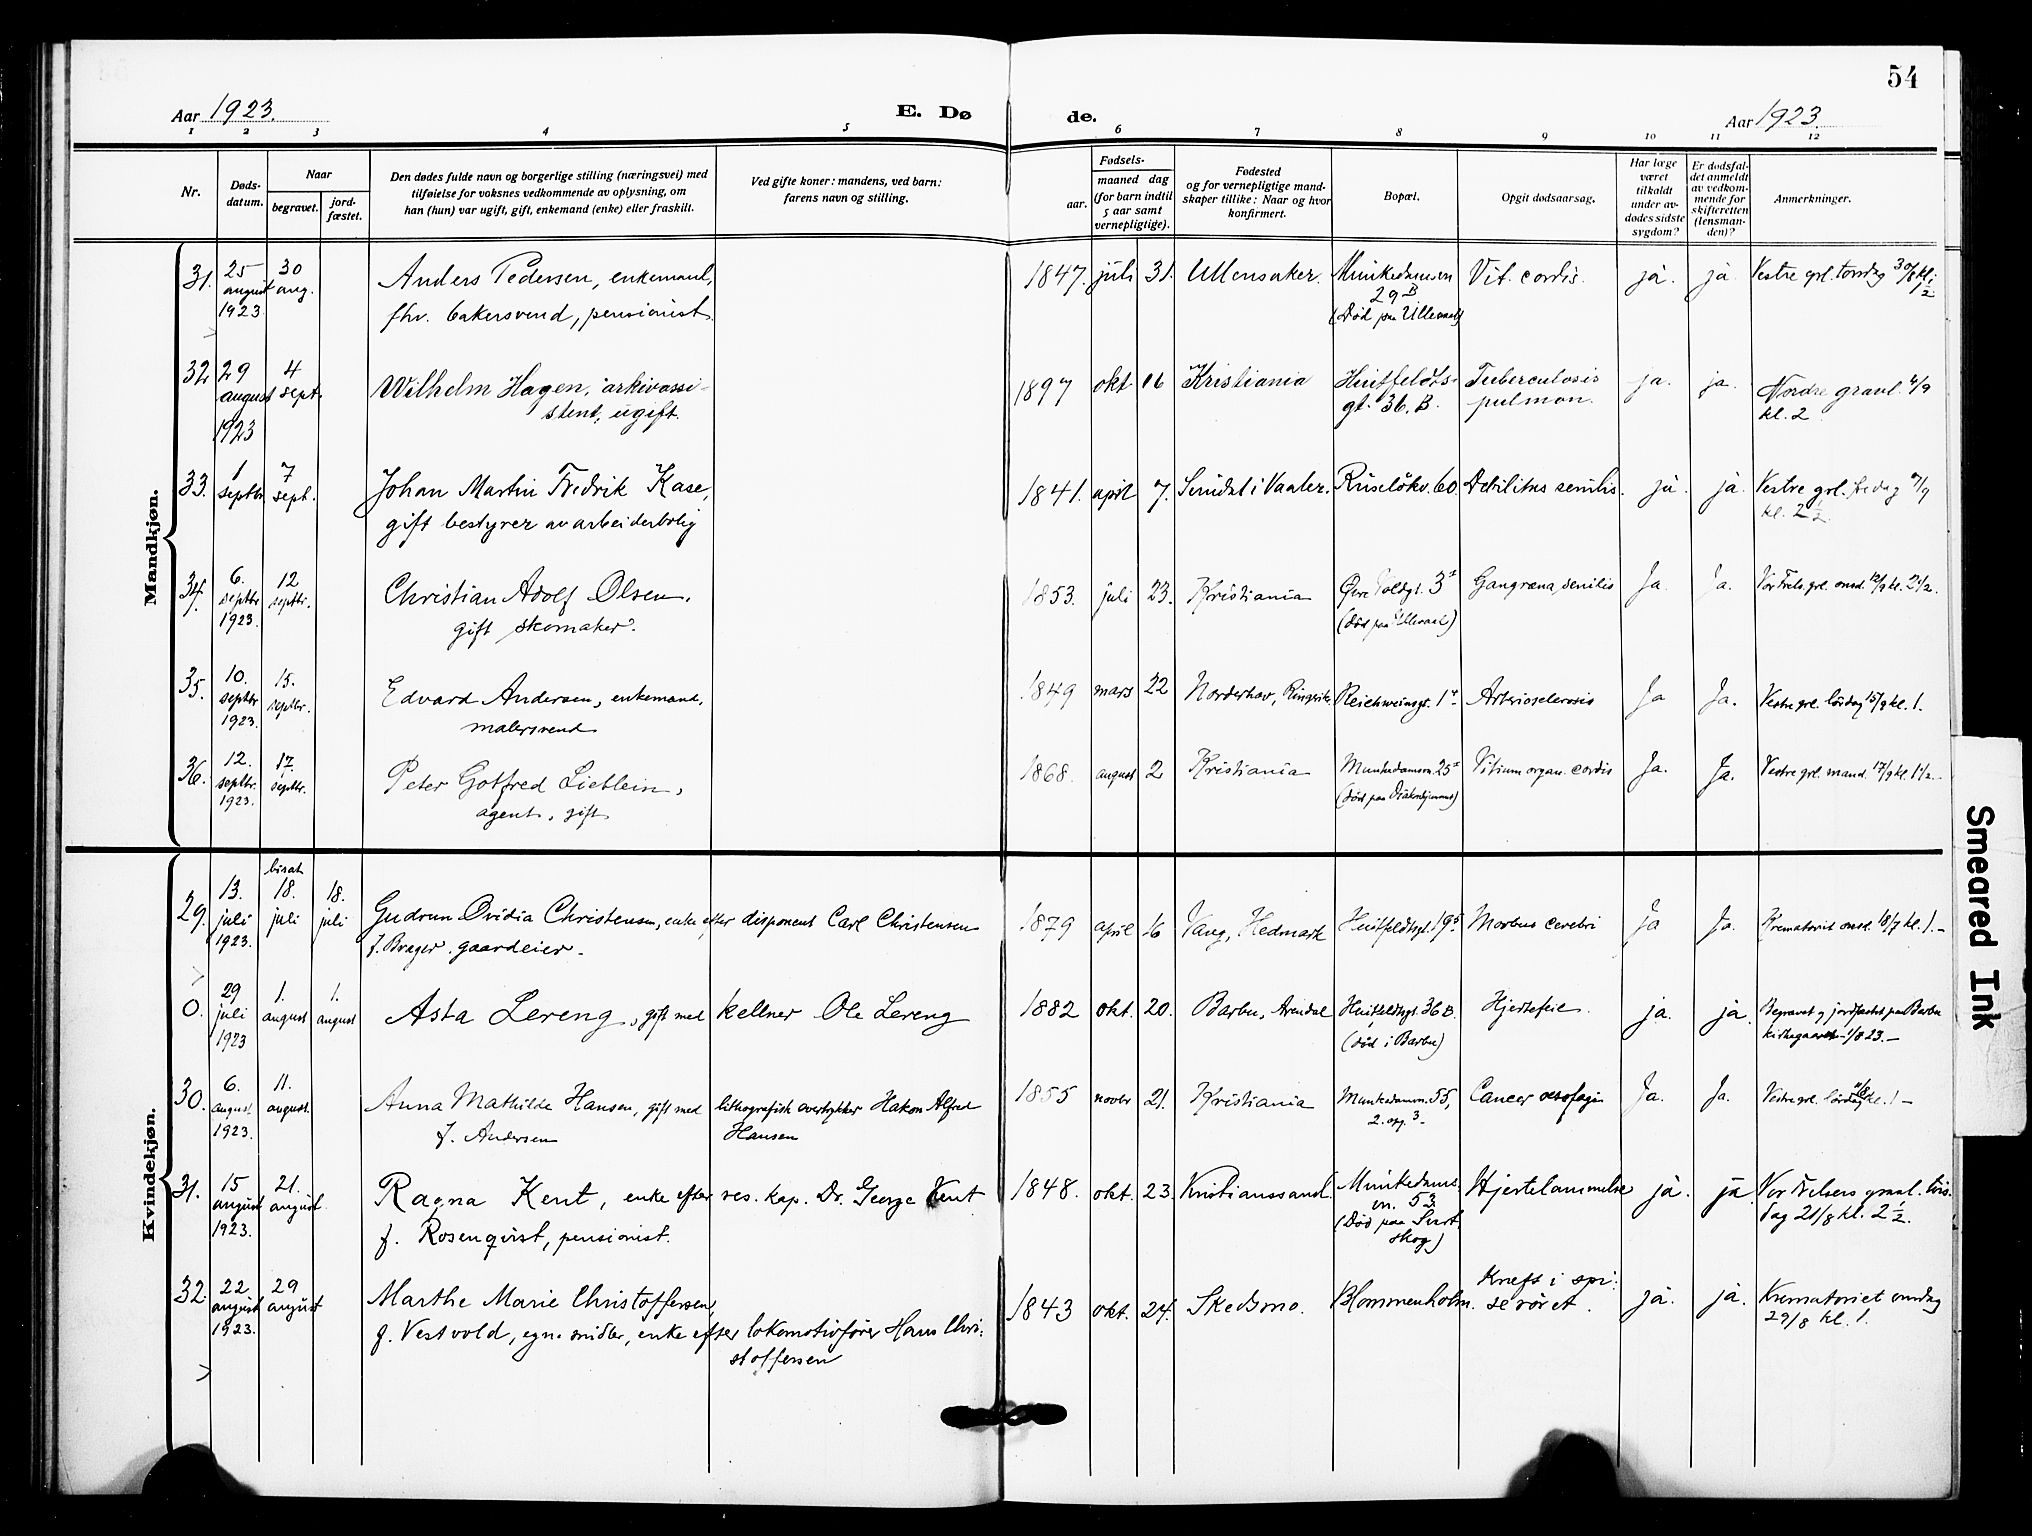 54
Aar 1923.
E. Dø
de.
Aar 1923.
1 2 3 4 5 6 7 8 9 10 11 12
Nr.
Døds-
datum.
Naar
begravet.
jord-
fæstet.
Den dødes fulde navn og borgerlige stilling (næringsvei) med
tilføielse for voksnes vedkommende av oplysning, om
han (hun) var ugift, gift, enkemand (enke) eller fraskilt.
Ved gifte koner: mandens, ved barn:
farens navn og stilling.
Fødsels-
aar.
maaned dag
(for barn indtil
5 aar samt
vernepligtige).
Fødested
og for vernepligtige mand-
skaper tillike: Naar og hvor
konfirmert.
Bopæl.
Opgit dødsaarsag.
Har læge
været
tilkaldt
under av-
dødes sidste
sygdom?
Er dødsfal-
det anmeldt
av vedkom-
mende for
skifteretten
(lensman-
den)?
Anmerkninger.
Mandkjøn.
31. 25 august 1923 30 aug. Anders Pedersen, enkemand,
fhv. bakersvend, pensionist.
1847. juli 31. Ullensaker. Munkedamsvn
29 B
(Død paa Ullevaal)
Vit. cordis. ja. ja. Vestre grl. torsdag 30/8 kl. 1 1/2
32 29 august 1923 4 sept. Wilhelm Hagen, arkivassi-
stent, ugift.
1897 okt 16 Kristiania Huitfeldts-
gt. 36. B.
Tuberculosis
pulmon.
ja. ja. Nordre gravl. 4/9
kl. 2
33. 1 septbr 7 sept. Johan Martin Fredrik Kase,
gift bestyrer av arbeiderbolig
1841. april 7. Svindal i Vaaler. Ruseløkv. 60. Debilitas senilis. ja. ja. Vestre grl. fredag 7/9
kl. 2 1/2.
34. 6. septbr 1923. 12 septbr. Christian Adolf Olsen.
gift skomaker.
1853. juli 23. Kristiania Øvre Voldgt. 3
(død paa Ullevaal)
Gangræna senilis Ja. Ja. Vor Frels. grl. onsd. 12/9 kl. 2 1/2.
35. 10. septbr 1923. 15. septbr. Edvard Andersen, enkemand,
malersvend
1849 mars 22 Norderhov, Ringerike Reichweinsgt. 1 Arteriosclerosis Ja Ja. Vestre grl. lördag 15/9 kl. 1.
36. 12. septbr. 1923. 17. septbr. Peter Gotfred Lieblein,
agent, gift
1868. august 2 Kristiania Munkedamsv. 25
(død paa Diakonhjemmet)
Vitium organ. cordis Ja. Ja. Vestre grl. mand. 17/9 kl. 1 1/2.
Kvindekjøn.
29. 13. juli 1923. bisat 18. juli 18. juli Gudrun Ovidia Christensen, enke efter disponent Carl Christensen
f. Brager. gaardeier.
1879 april 16 Vang, Hedmark Huitfeldtsgt. 19 Morbus cerebri Ja Ja. Krematoriet onsd. 18/7 kl. 1.-
0. 29 juli 1923 1. august 1. august Asta Lereng, gift med kellner Ole Lereng
1882 okt. 20. Barbu, Arendal Huitfeldtsgt. 36 B.
(død i Barbu)
Hjertefeil. ja. ja. Begravet og jordfæstet paa Barbu
kirkegaard 1/8 23.-
30. 6. august. 1923. 11. august. Anna Mathilde Hansen, gift med lithografisk overtrykker Hakon Alfred
f. Andersen Hansen
1855 novbr 21. Kristiania Munkedamsv. 55,
2. opg. 3.
Cancer oesofagi Ja. Ja. Vestre grl. lördag 11/8 kl. 1 -
31. 15 august 1923. 21. august. Ragna Kent, enke efter res. kap. Dr. George Kent
f. Rosenqvist, pensionist.
1848. okt. 23. Kristianssand. Munkedams
vn. 53
(Død paa Svart
skog)
Hjertelammelse ja. ja Vor Frelsers gravl. tirs.
dag 21/8 kl. 2 1/2.
32. 22. august 1923. 29 august Marthe Marie Christoffersen,
f. Vestvold, egne midler, enke efter lokomotivfører Hans Chri-
stoffersen
1843 okt. 24. Skedsmo. Blommenholm. Kreft i spi-
serøret.
ja. ja. Krematoriet onsdag
29/8 kl. 1.
Smeared Ink